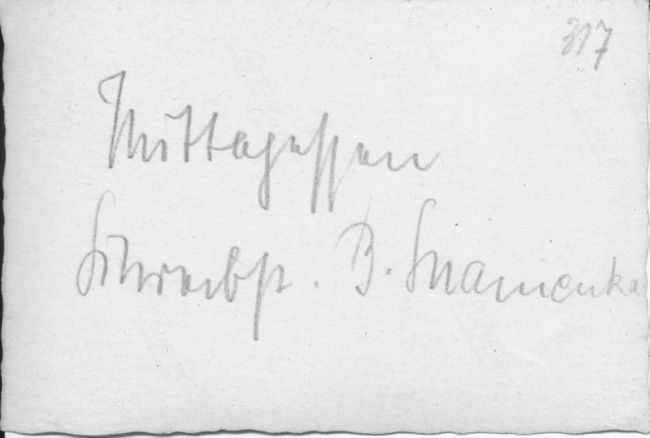 317
Mittagessen
Schreibst. B. Snamenka